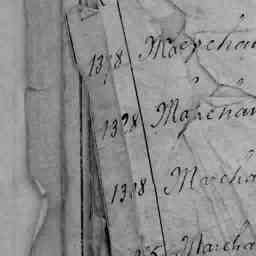 1378 Marchan
1328 Marchan
1308 Marcha
Marcha